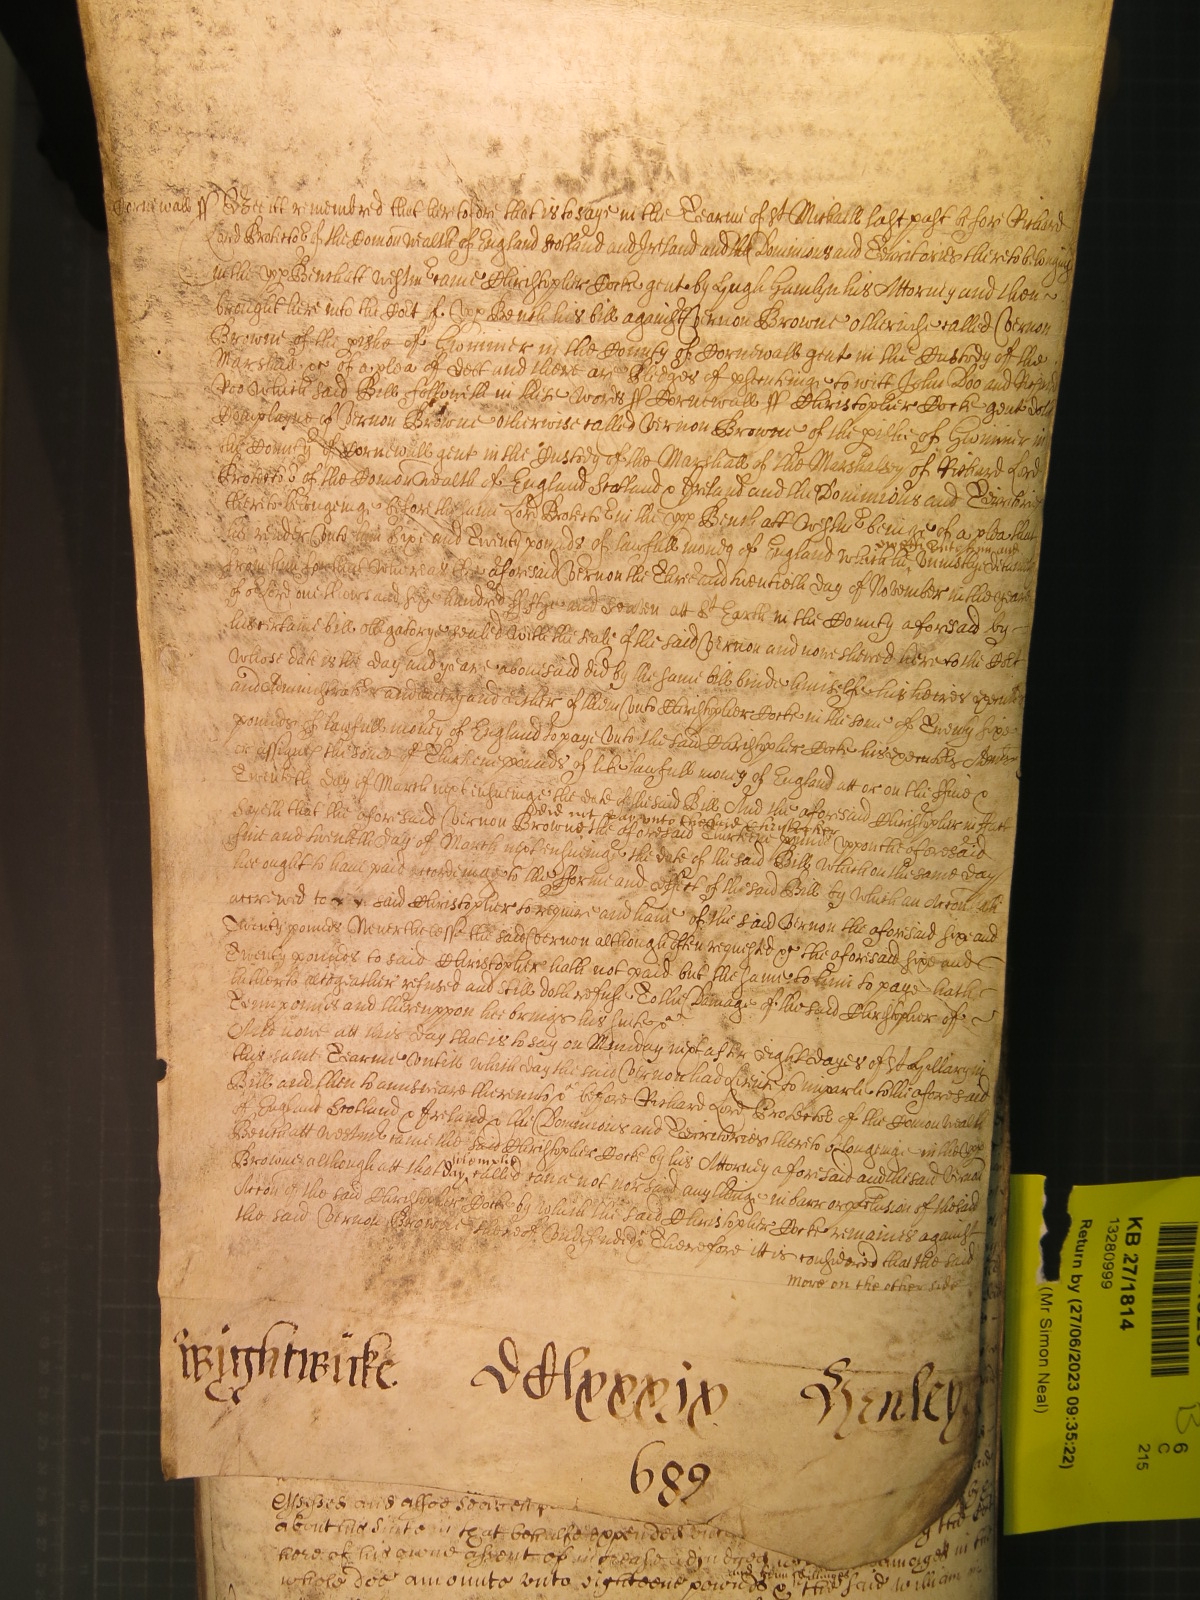 Cornewall ss Bee itt remembred that heretofore that is to saye in the Tearme of St Michaell last past before Richard
Lord Protector of the Comonwealth of England Scotland and Ireland and the Dominions and Territories thereto belonging
in the upp Bench att Westmr came Christopher Cocke gent by Hugh Hamlyn his Attorney and then
brought here into the Cort of Upp Bench his bill against Vernon Browne otherwise called Vernon
Browne of the pishe of Gwinner in the County of Cornewall gent in the Custody of the
Marshall &c of a plea of Debt and there are Pledges of psecutinge to witt John Doo and Richard
Roo Which said Bill followeth in these words ss Cornewall ss Christopher Cocke gent doth
Complayne of Vernon Browne otherwise called Vernon Browne of the pishe of Gwinner in
the County of Cornewall gent in the Custody of the Marshall of the Marshalsey of Richard Lord
Protector of the Comonwealth of England Scotland & Ireland and the Dominions and Territories
thereto belongenge before the same Lord Protector in the upp Bench att Westmr beinge of a plea that
he render unto him Sixe and Twenty pounds of lawfull money of England which he oweth unto him and Uniustlye deteineth
from him for that whereas the aforesaid Vernon the Three and twentieth day of November in the yeare
of or Lord one thousand sixe hundred fiftye and seaven att St Earth in the County aforesaid by
his certaine bill obligatorye sealed with the seale of the said Vernon and nowe shewed here to the Cort
whose date is the day and yeare abovesaid did by the same bill binde himselfe his heires executors
and Administrators and every and either of them unto Christopher Cocke in the some of Twenty sixe
pounds of lawfull money of England to paye unto the said Christopher Cocke his executors Administrators
or assignes the some of Thirteene pounds of like lawfull money of England att or on the ffive &
Twentieth day of March next ensueinge the date of the said Bill And the aforesaid Christopher in ffact
sayeth that the aforesaid Vernon Browne did not pay unto the said Christopher the aforesaid Thirteene pounds uppon the aforesaid
ffive and twentieth Day of March next ensueinge the date of the said Bill Which on the same day
hee ought to have paid accordinge to the fforme and effect of the said Bill by which an Accon hath
accrewed to the said Christopher to require and have of the said Vernon the aforesaid sixe and
Twenty pounds Neverthelesse the said Vernon although often requested &c the aforesaid sixe and
Twenty pounds to said Christopher hath not paid but the same to him to paye hath
hitherto altogeather refused and still doth refuse To the Damage of the said Christopher of
Tenn pounds and thereuppon hee brings his suite &c
And nowe att this day that is to say on Munday next after eight dayes of St Hillary in
this same Tearme Untill which day the said Vernon had licence to imparle to the aforesaid
Bill and then to answeare thereunto &c before Richard Lord Protector of the Comonwealth
of England Scotland & Ireland & the Dominions and Territories thereto belongenge in the Upp
Bench att Westmr came the said Christopher Cocke by his Attorney aforesaid and the said Vernon
Browne although att that day solemply called came not nor said any thinge in barr or preclusion of the said
Accon of the said Christopher Cocke by which the said Christopher Cocke remaines against
the said Vernon Browne thereof Undefended Therefore itt is considered that the said
more on the other side
Wightwicke DClxxxix Henley
689
KB 27/1814
13280999
Return by (27/06/2023 09:35:22)
(Mr Simon Neal)
6
C
215
about his suite in that behalfe expended
here of his owne assent of increase adiudged damages in the
whole doe amounte unto eighteene pounds & the said William